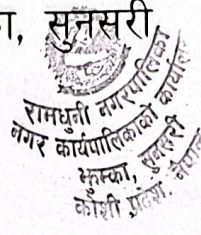 ा, सुनसरी
रामधुनी नगरपालिका
नगर कार्यपालिकाको कार्यालय
झुम्का, सुनसरी
कोशी प्रदेश, नेपाल